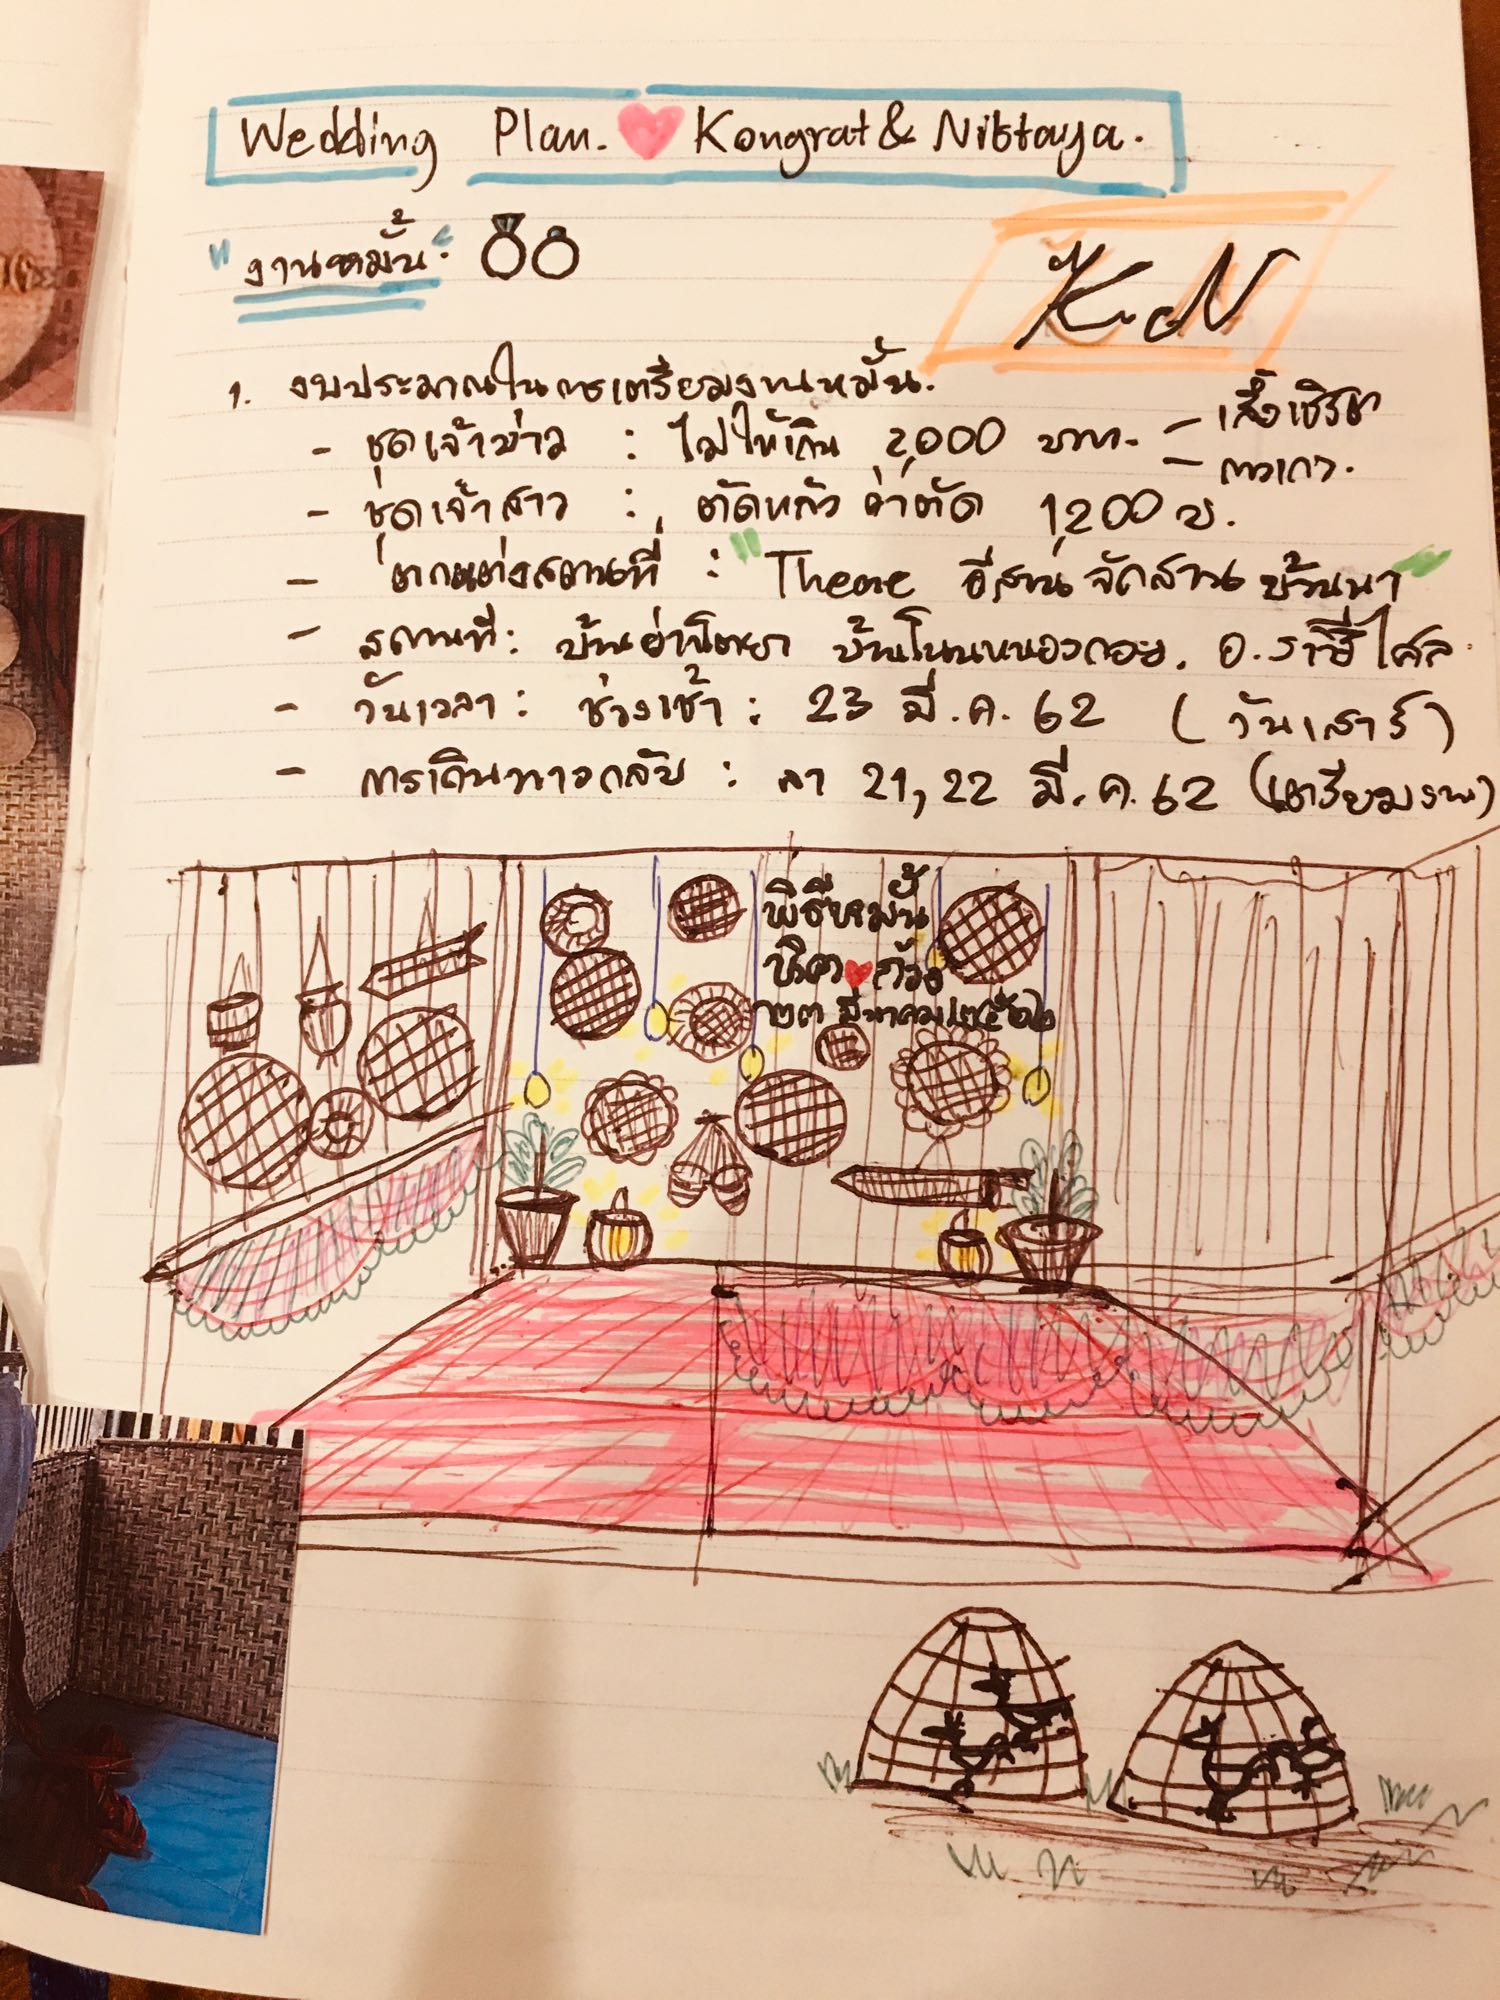 Wedding Plan. Kongrat & Nittaya.
"งานหมั้น"
K.N
1. งบประมาณในการเตรียมงานหมั้น.
- ชุดเจ้าบ่าว : ไม่ให้เกิน 2,000 บาท. - เสื้อเชิ้ต
- กางเกง.
- ชุดเจ้าสาว : ตัดแล้ว ค่าตัด 1,200 บ.
- ตกแต่งสถานที่ : "Theme อีสาน จักสาน บ้านนา"
- สถานที่ : บ้าน บ้านโนน อ.ราษีไศล
- วันเวลา : ช่วงเช้า : 23 มี.ค. 62 (วันเสาร์)
- การเดินทางกลับ : ลา 21, 22 มี.ค. 62 (เตรียมงาน)
พิธีหมั้น
ก้อง
๒๓ มีนาคม ๒๕๖๒